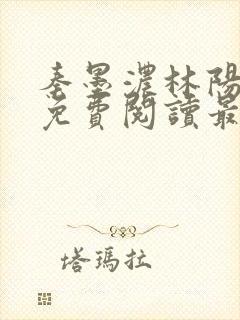 秦墨濃林陽
免費閱讀最
塔瑪拉